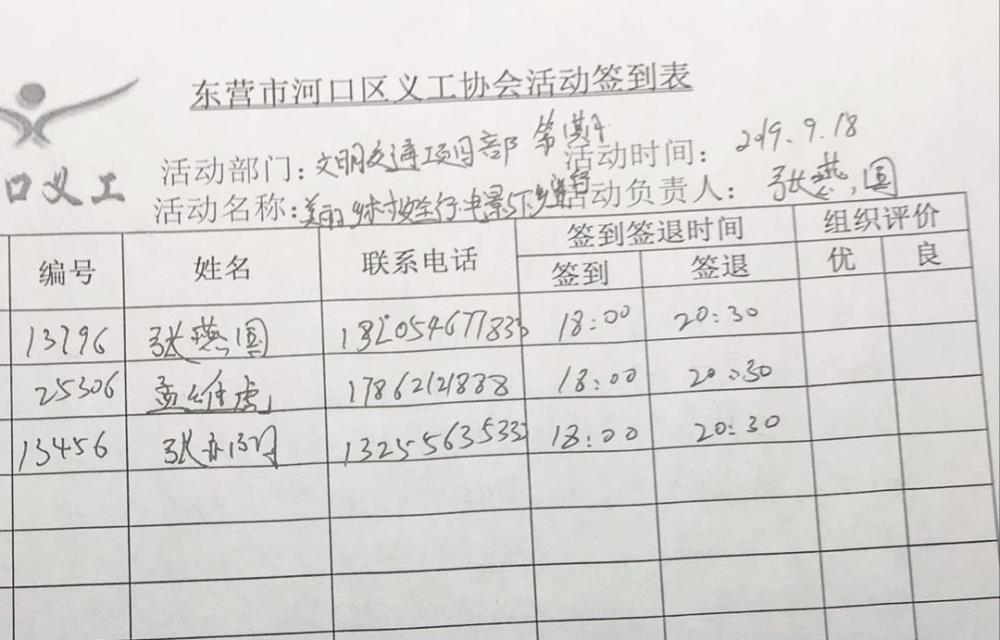 东营市河口区义工协会活动签到表
活动部门：文明交通项目部 第 期
活动时间：2019.9.18
口义工
活动名称：美丽乡村安全行电影下乡
活动负责人：张燕圆
编号 姓名 联系电话 签到签退时间 组织评价
签到 签退 优 良
13796 张燕圆 18:00 20:30
25306 孟维虎 17862121888 18:00 20:30
13456 张 13255635333 18:00 20:30